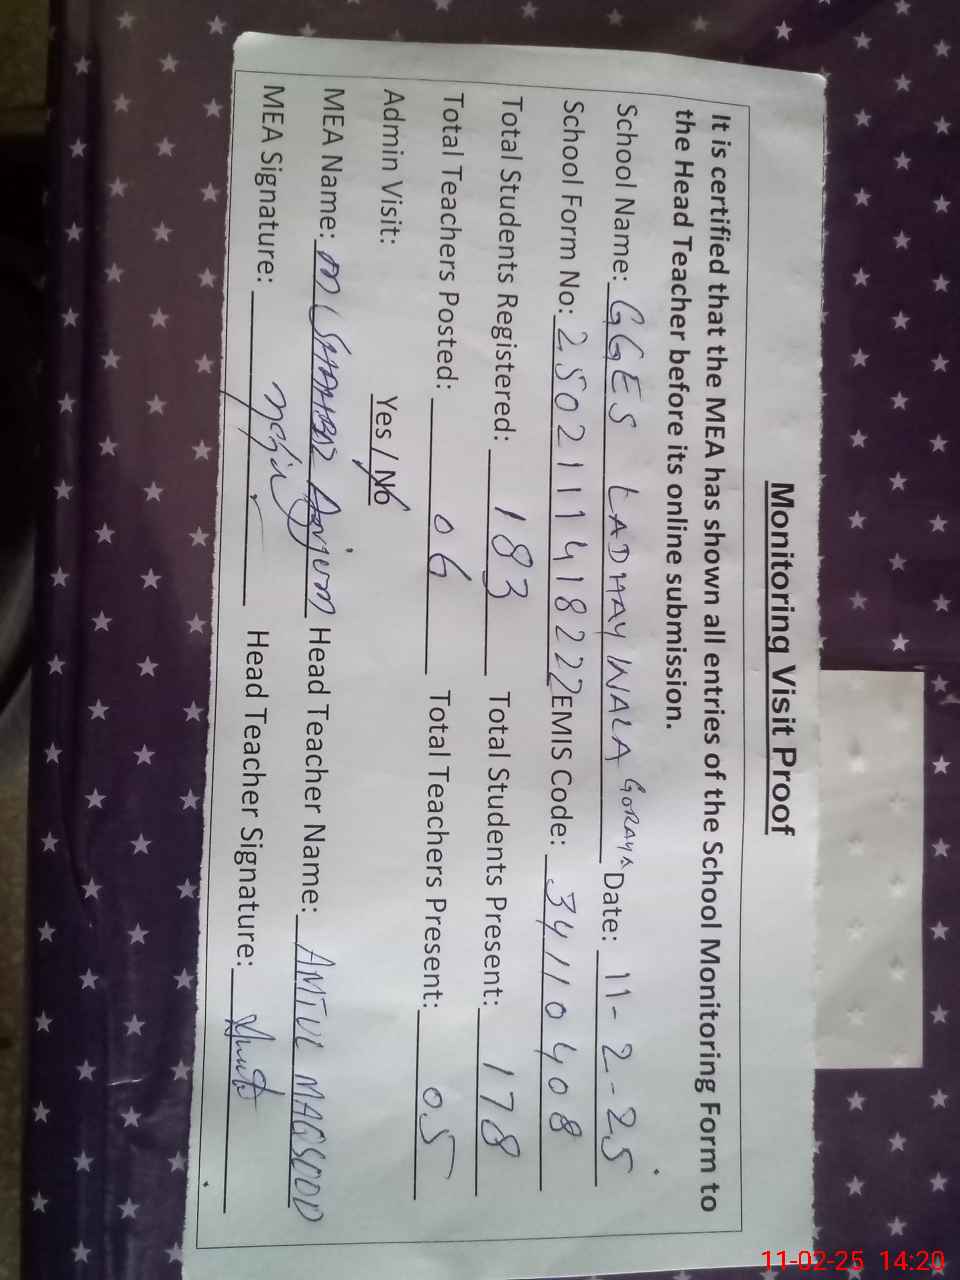 Monitoring Visit Proof
It is certified that the MEA has shown all entries of the School Monitoring Form to
the Head Teacher before its online submission.
School Name: GGES LADHAY WALA GORAYA Date: 11-2-25
School Form No: 2502111418222 EMIS Code: 34110408
Total Students Registered: 183 Total Students Present: 178
Total Teachers Posted: 06 Total Teachers Present: 05
Admin Visit: Yes / No
MEA Name: M Anjum Head Teacher Name: AMTUL MAQSOOD
MEA Signature: Head Teacher Signature:
11-02-25 14:20